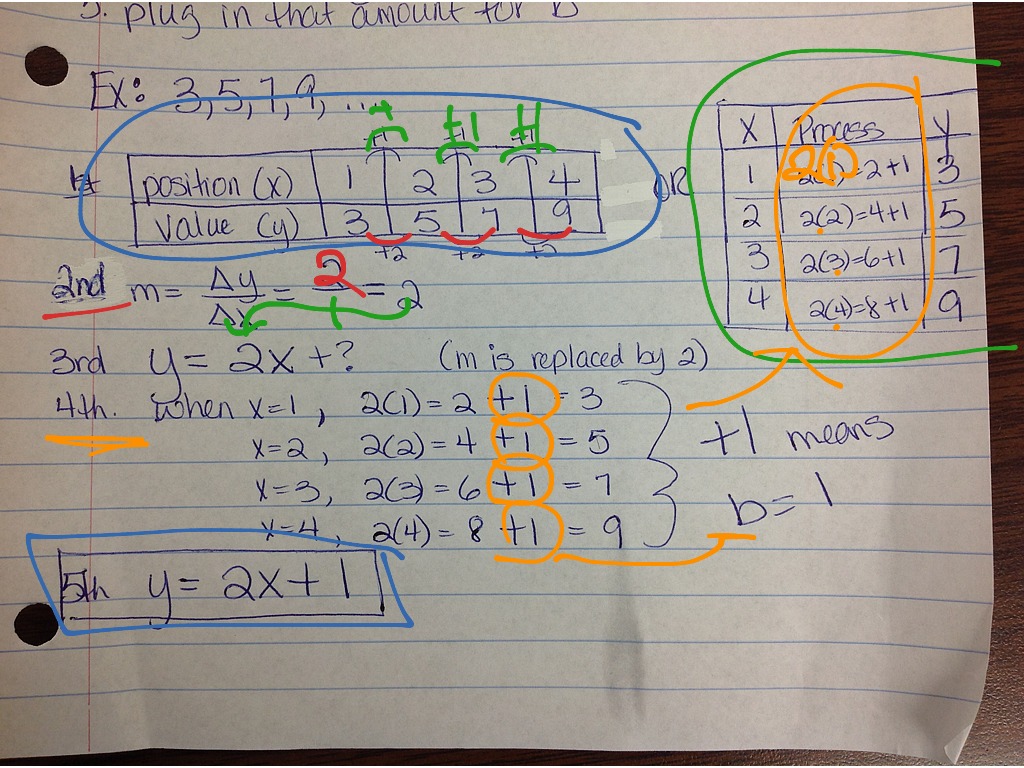 plug in that amount for b
Ex: 3, 5, 7, 9, ...
+1 +1 +1
1st
position (x) 1 2 3 4
value (y) 3 5 7 9
+2 +2 +2
OR
x Process y
1 2(1)=2+1 3
2 2(2)=4+1 5
3 2(3)=6+1 7
4 2(4)=8+1 9
2nd m= Δy/Δx = 2/1 = 2
3rd y = 2x + ? (m is replaced by 2)
4th. When x=1, 2(1) = 2 +1 = 3
x=2, 2(2) = 4 +1 = 5
x=3, 2(3) = 6 +1 = 7
x=4, 2(4) = 8 +1 = 9
+1 means
b = 1
5th y = 2x + 1